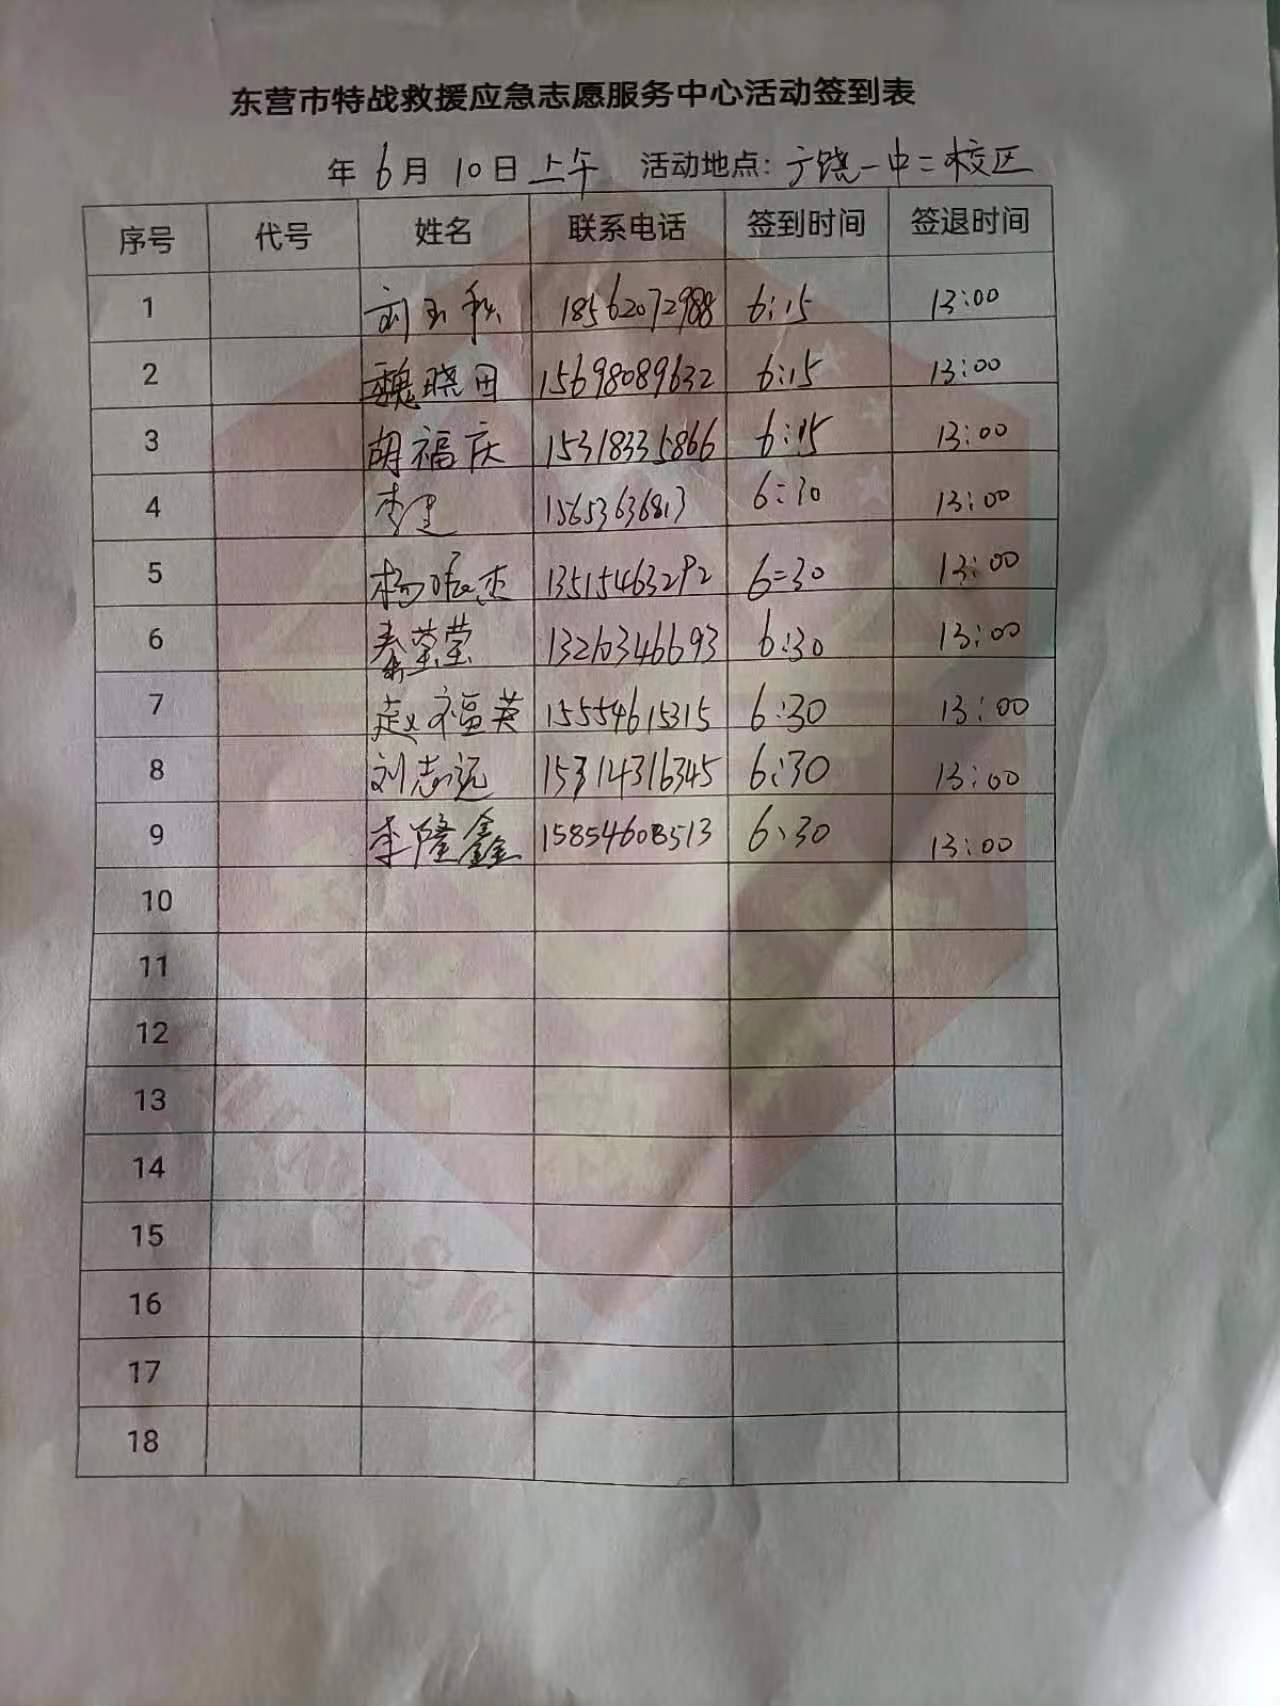 东营市特战救援应急志愿服务中心活动签到表
年 6月 10日上午 活动地点: 广饶一中二校区
序号 代号 姓名 联系电话 签到时间 签退时间
1 刘玉秋 18562072988 6:15 13:00
2 魏晓田 15698089632 6:15 13:00
3 胡福庆 15318335866 6:15 13:00
4 李建 6:30 13:00
5 杨 杰 13515463292 6:30 13:00
6 秦莹莹 13210346693 6:30 13:00
7 赵福英 15554615315 6:30 13:00
8 刘志远 15314316345 6:30 13:00
9 李隆鑫 15854608513 6:30 13:00
10
11
12
13
14
15
16
17
18